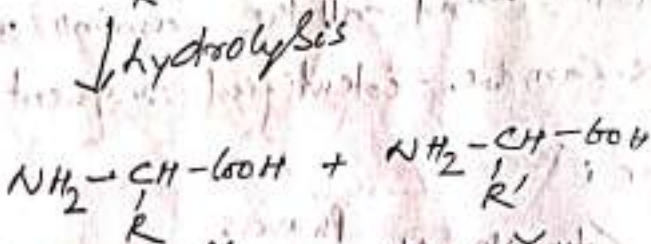 ↓ hydrolysis
NH₂-CH-COOH + NH₂-CH-COOH
R R'